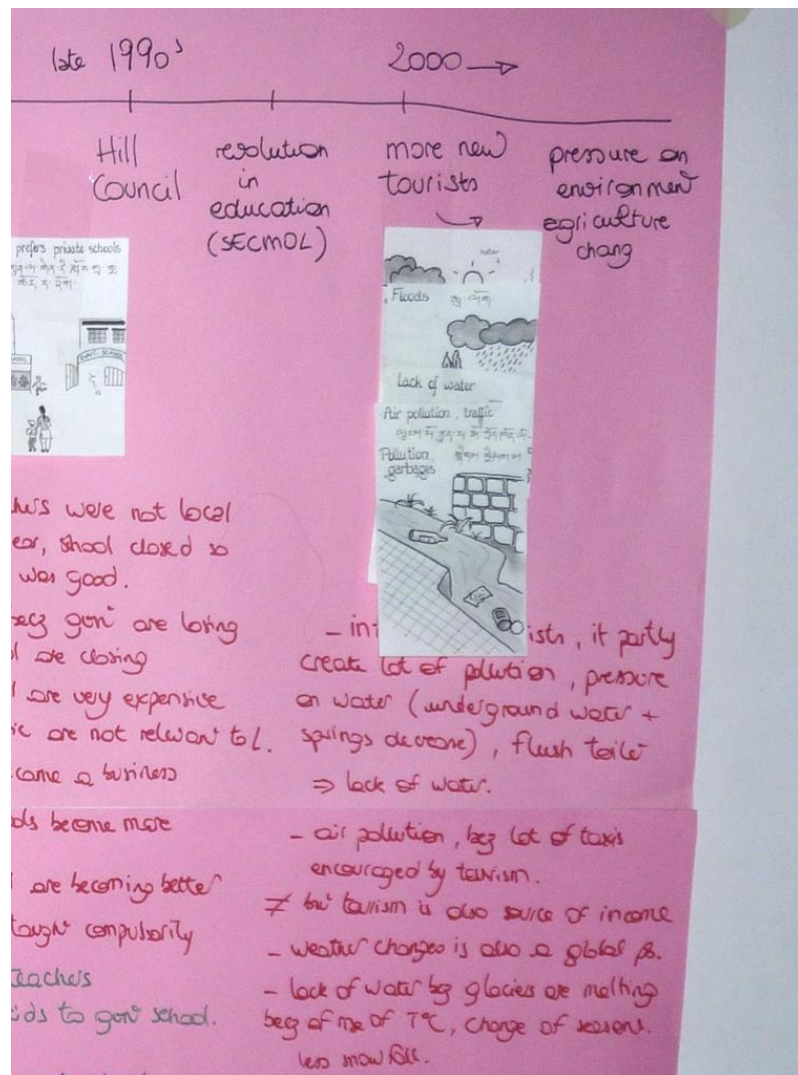 late 1990's
2000 →
Hill
Council
revolution
in
education
(SECMOL)
more new
tourists
pressure on
environmen
agriculture
chang
prefers private schools
GOVT. SCHOOL
water
Floods
Lack of water
Air pollution, traffic
Pollution
garbages
were not local
ear, shool closed so
was good.
are losing
are closing
are very expensive
are not relevant to L.
came a business
ds become more
are becoming better
taught compulsarity
teachers
ids to govt school.
- in ists, it partly
create lot of pollution, pressure
on water (underground water +
springs decrease), flush toilet
⇒ lack of water.
- air pollution, bcz lot of taxis
encouraged by tourism.
≠ but tourism is also source of income
- weather changes is also a global pb.
- lack of water bcz glaciers are melting
of T°C, change of seasons.
less snow fall.